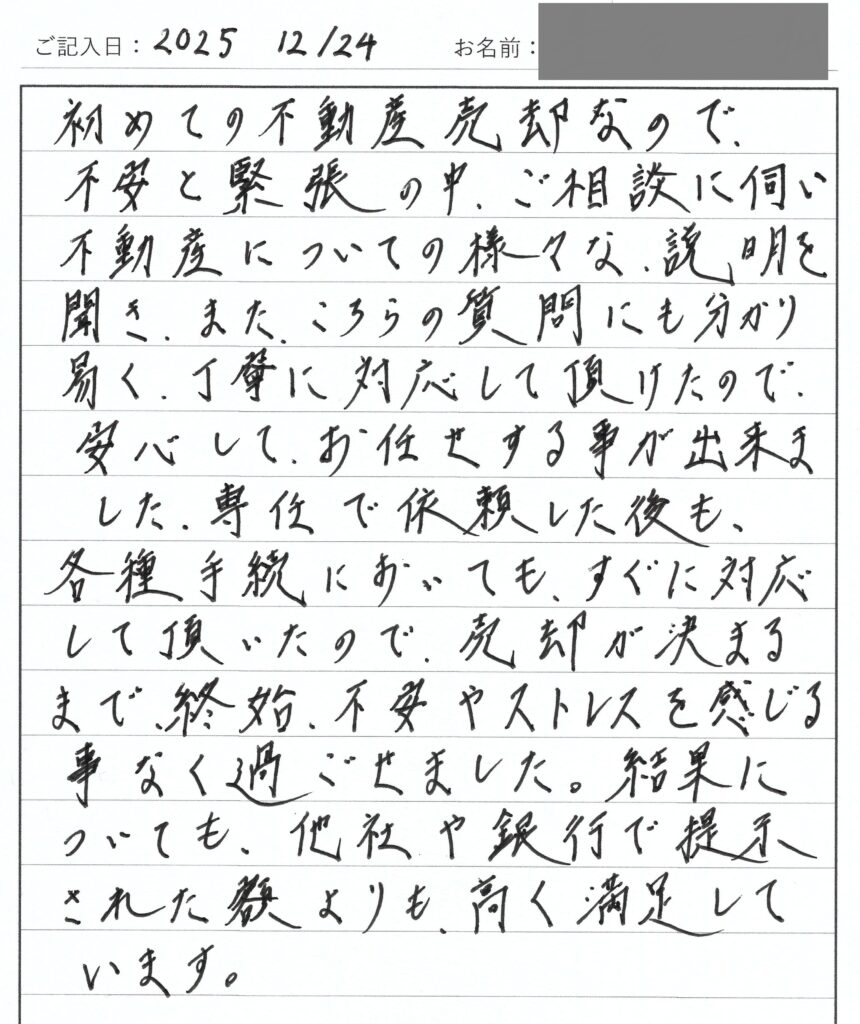 ご記入日： 2025 12/24 お名前：
初めての不動産売却なので、
不安と緊張の中、ご相談に伺い
不動産についての様々な、説明を
聞き、また、こちらの質問にも分かり
易く、丁寧に対応して頂けたので、
安心して、お任せする事が出来ま
した、専任で依頼した後も、
各種手続においても、すぐに対応
して頂いたので、売却が決まる
まで、終始、不安やストレスを感じる
事なく過ごせました。結果に
ついても、他社や銀行で提示
された額よりも、高く満足して
います。